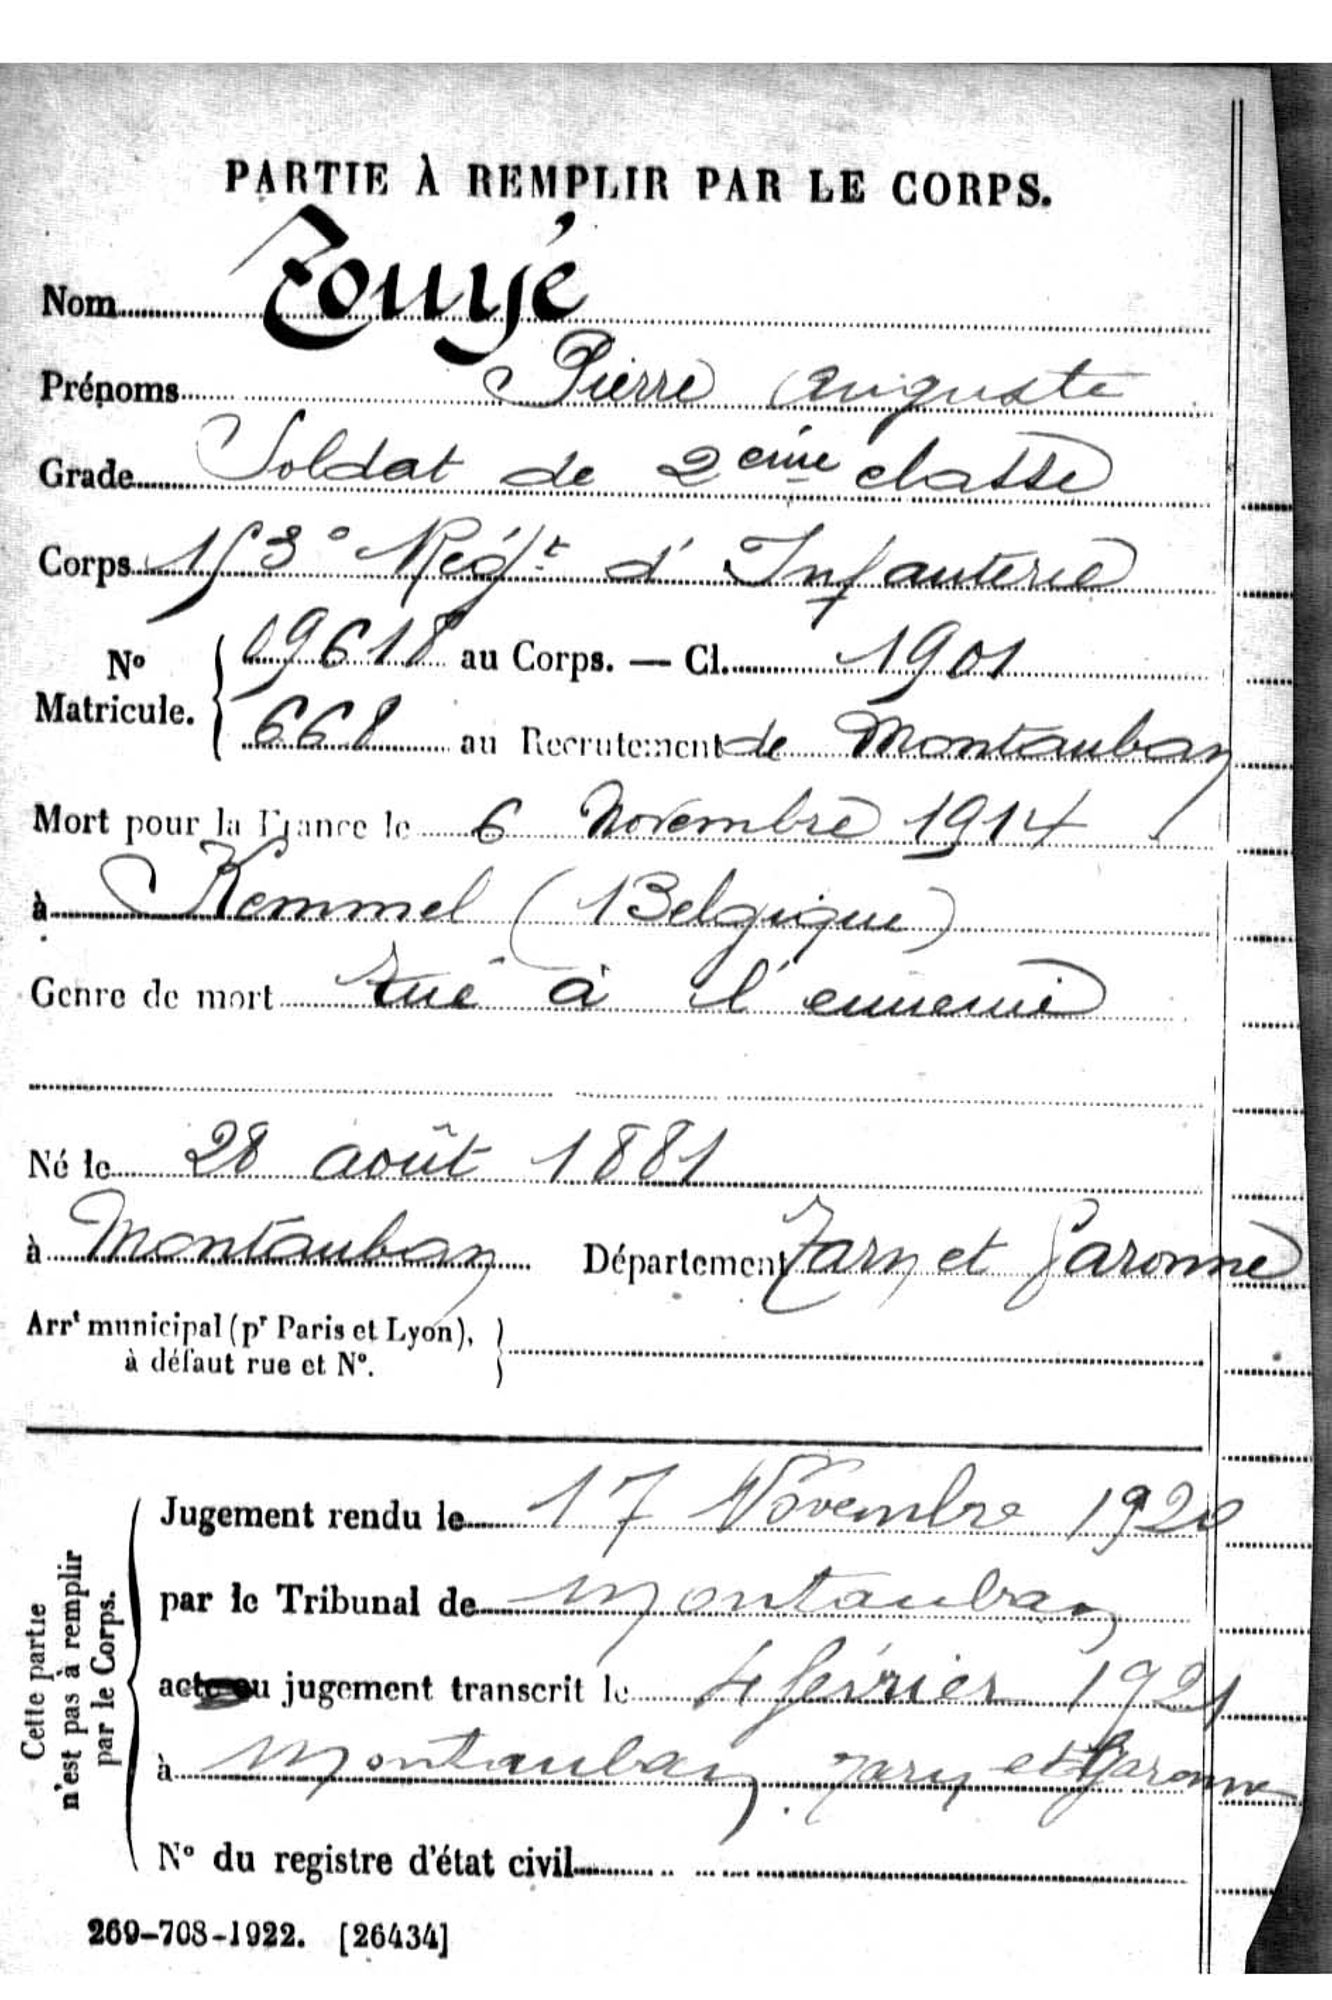 PARTIE À REMPLIR PAR LE CORPS.
Nom Touyé
Prénoms Pierre Auguste
Grade Soldat de 2eme classe
Corps 153° Régt d'Infanterie
No 09618 au Corps. — Cl. 1901
Matricule. 668 au Recrutement de Montauban
Mort pour la France le 6 Novembre 1914
à Kemmel (Belgique)
Genre de mort tué à l'ennemi
Né le 28 août 1881
à Montauban Département Tarn et Garonne
Arrt municipal (pr Paris et Lyon),
à défaut rue et No.
Cette partie
n'est pas à remplir
par le Corps.
Jugement rendu le 17 Novembre 1920
par le Tribunal de Montauban
acte ou jugement transcrit le 4 février 1921
à Montauban Tarn et Garonne
No du registre d'état civil
269-708-1922. [26434]